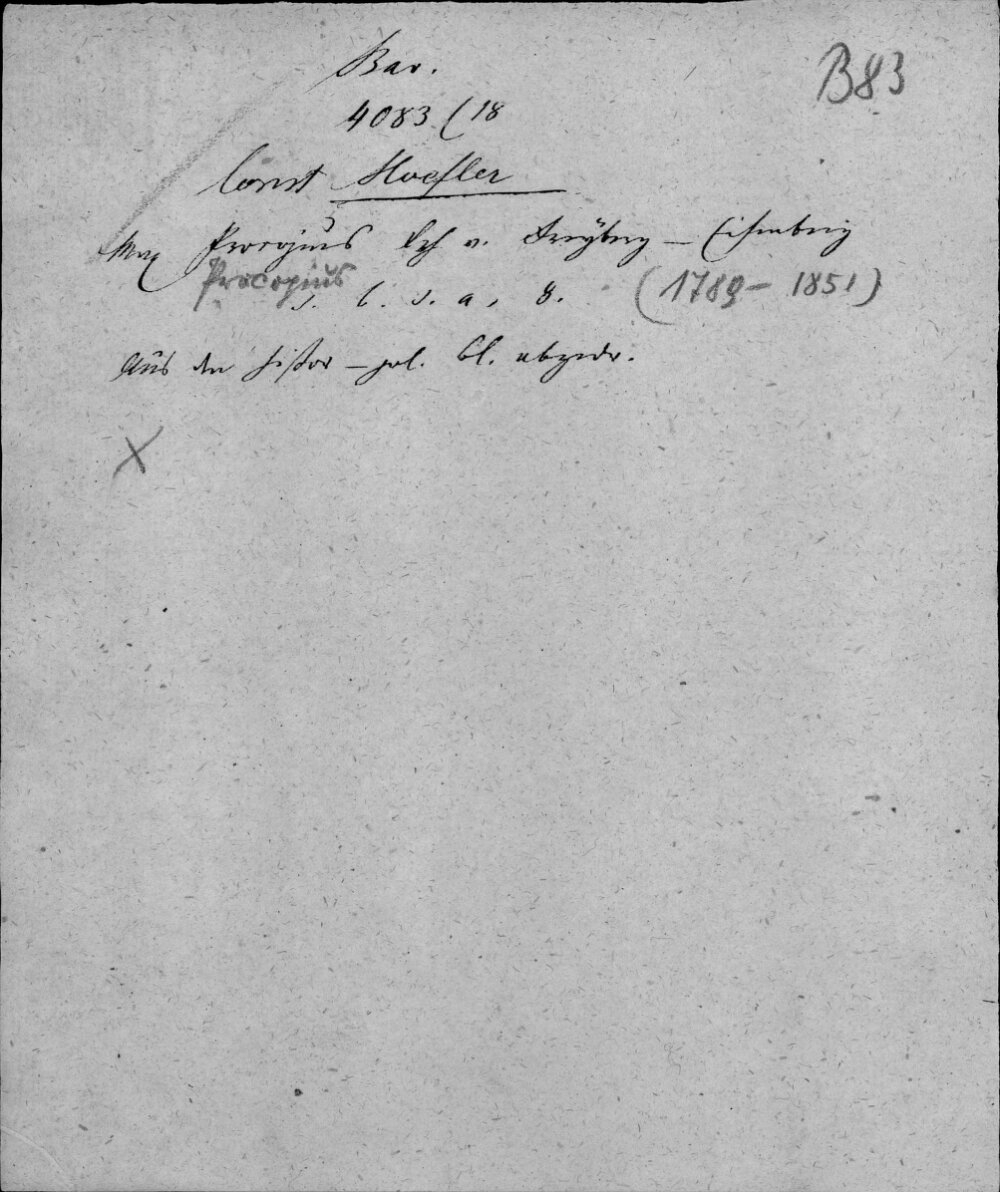 Bav.
B83
4083 (18
Const Hoefler
Max Procopius Frh v. Freÿberg – Eisenberg
Procopius
s. l. s. a, 8. (1789 – 1851)
Aus den histor – pol. Bl. abgedr.
X